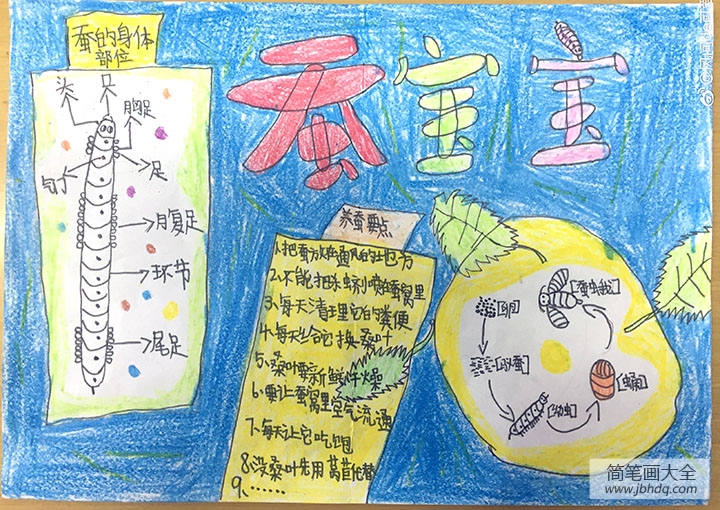 蚕的身体
部位
头
口
胸足
足
气门
腹足
环节
尾足
蚕宝宝
养蚕要点
1.把蚕放在通风的地方
2.不能把水蚊剂喷在蚕窝里
3.每天清理它的粪便
4.每天给它换桑叶
5.桑叶要新鲜干燥
6.要让蚕窝里空气流通
7.每天让它吃饱
8.没桑叶先用莴苣代替
9、……
[卵]
[蚁蚕]
[幼虫]
[蛹]
[蚕蛾]
简笔画大全
www.jbhdq.com